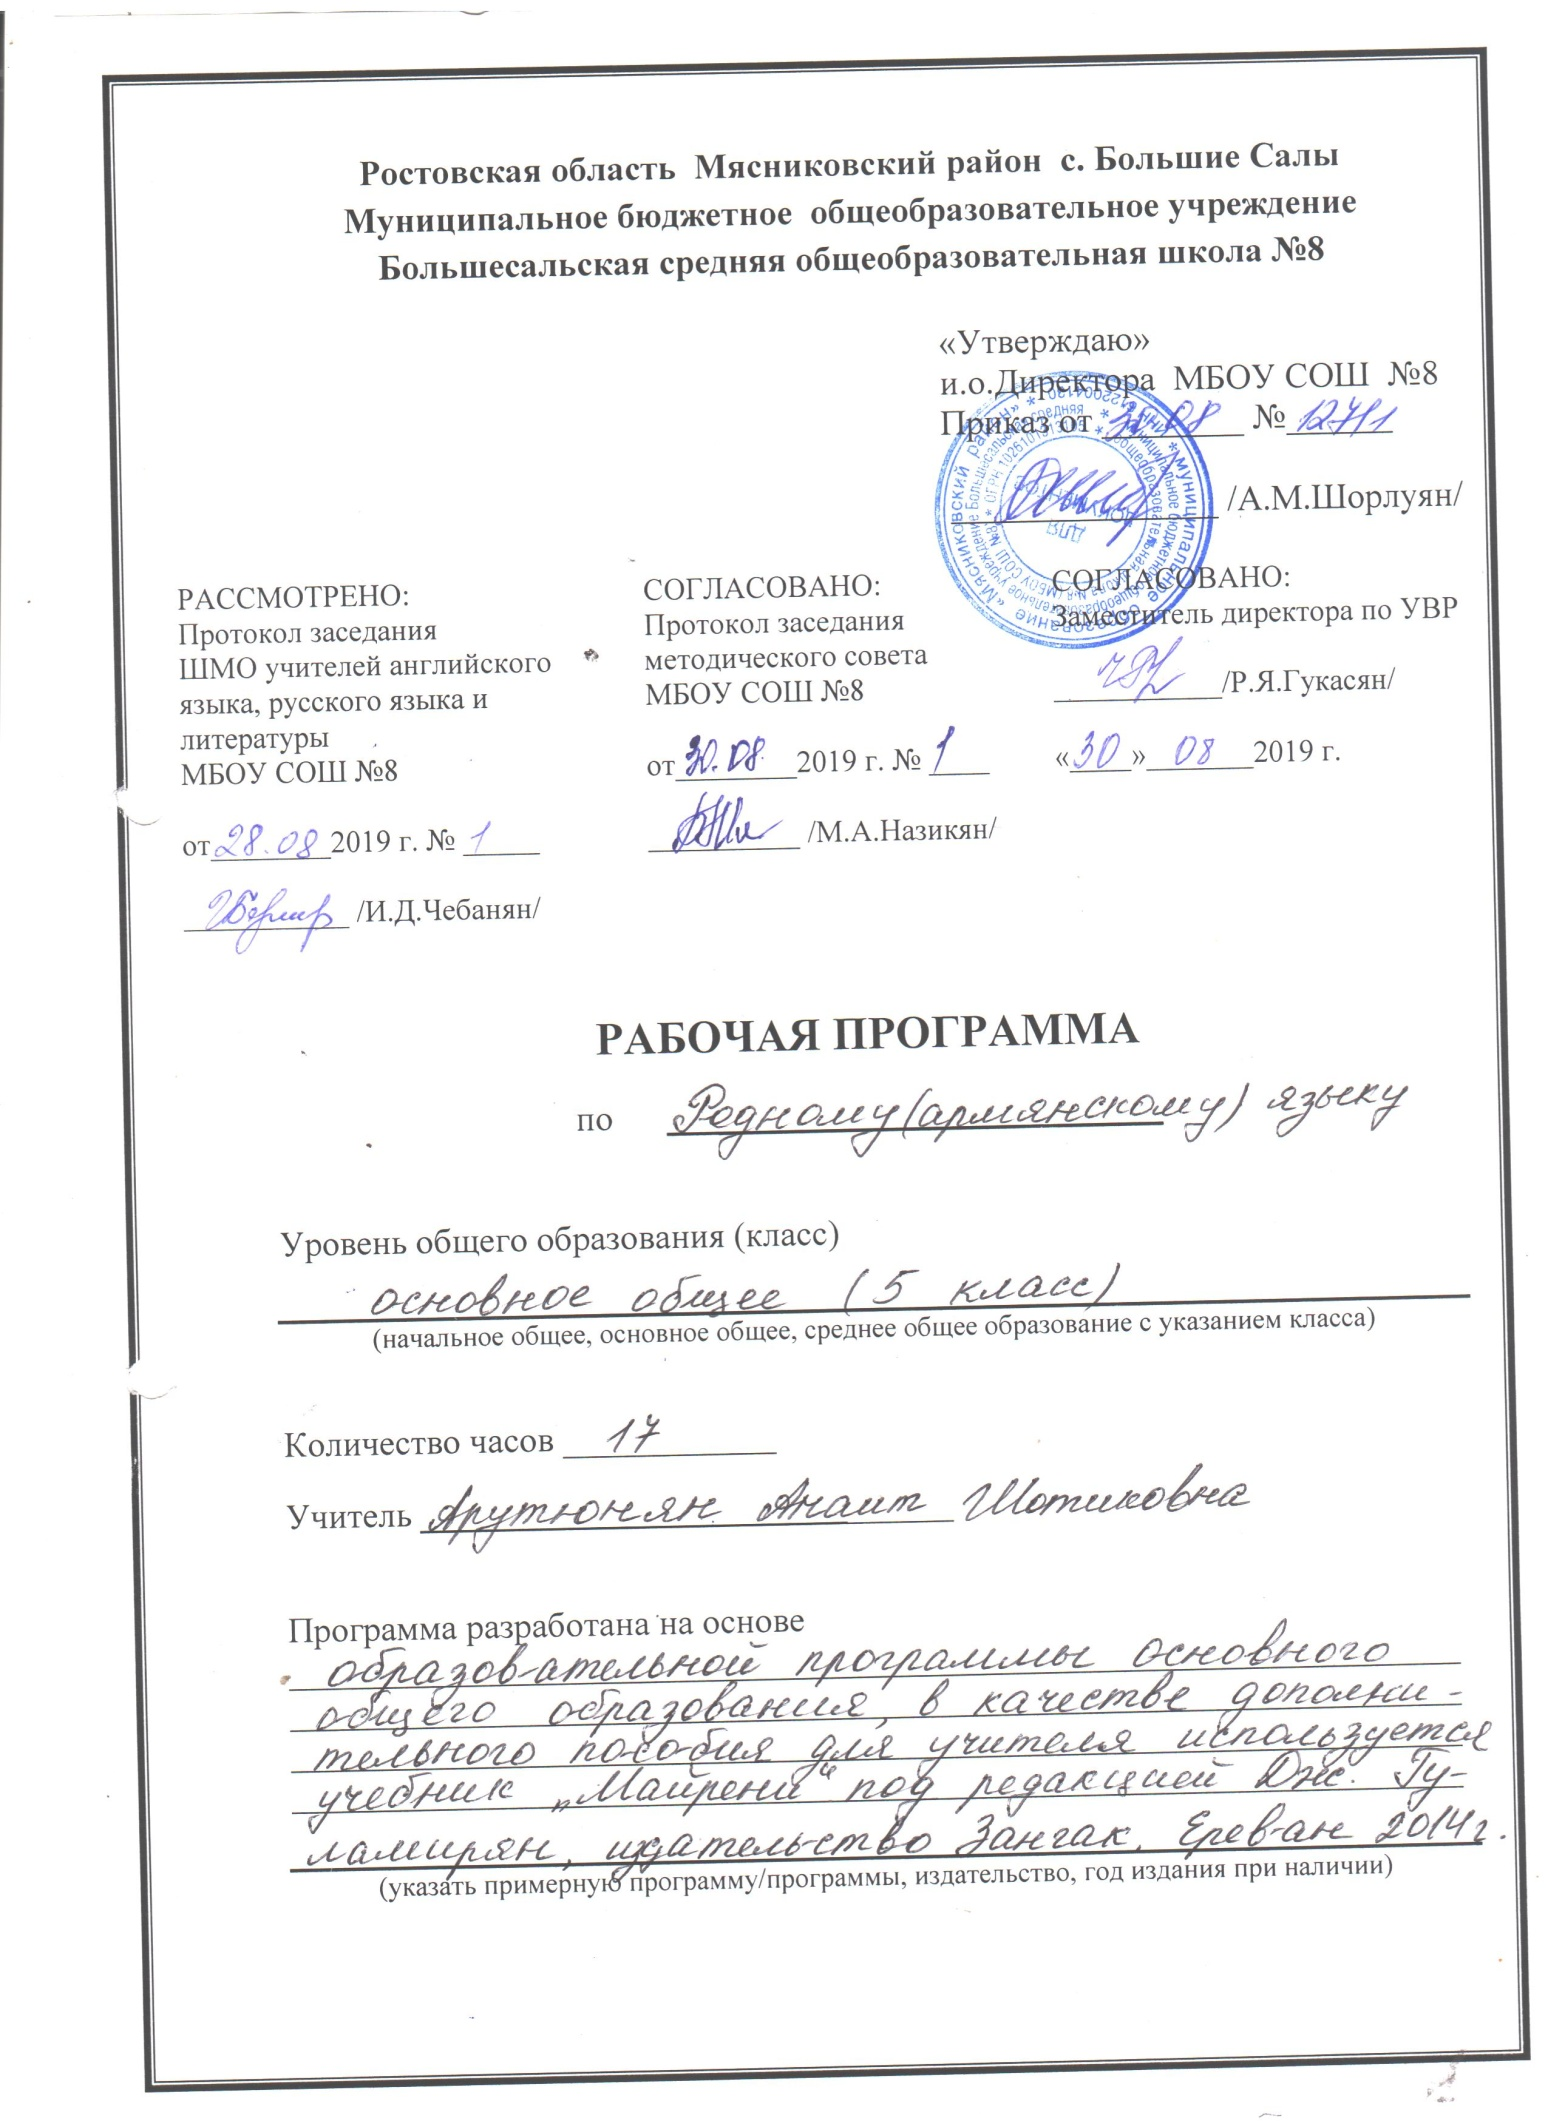 Ростовская область  Мясниковский район  с. Большие Салы
Муниципальное бюджетное  общеобразовательное учреждение
Большесальская средняя общеобразовательная школа №8
«Утверждаю»
и.о.Директора  МБОУ СОШ  №8
Приказ от 30.08 №
/А.М.Шорлуян/
РАССМОТРЕНО:
Протокол заседания
ШМО учителей английского
языка, русского языка и
литературы
МБОУ СОШ №8
от 28.08 2019 г. № 1
/И.Д.Чебанян/
СОГЛАСОВАНО:
Протокол заседания
методического совета
МБОУ СОШ №8
от 30.08 2019 г. № 1
/М.А.Назикян/
СОГЛАСОВАНО:
Заместитель директора по УВР
/Р.Я.Гукасян/
«30» 08 2019 г.
РАБОЧАЯ ПРОГРАММА
по Родному (армянскому) языку
Уровень общего образования (класс)
основное общее (5 класс)
(начальное общее, основное общее, среднее общее образование с указанием класса)
Количество часов 17
Учитель Арутюнян Анаит Шотиковна
Программа разработана на основе
образовательной программы основного
общего образования, в качестве дополни-
тельного пособия для учителя используется
учебник „Майрени“ под редакцией Дж. Гу-
ламирян, издательство Зангак. Ереван 2014г.
(указать примерную программу/программы, издательство, год издания при наличии)